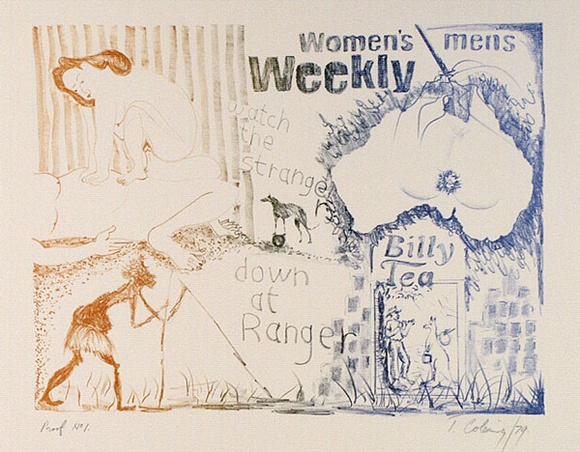 Women's mens
Weekly
watch
the
stranger
down
at
Ranger
Billy
Tea
Proof No 1.